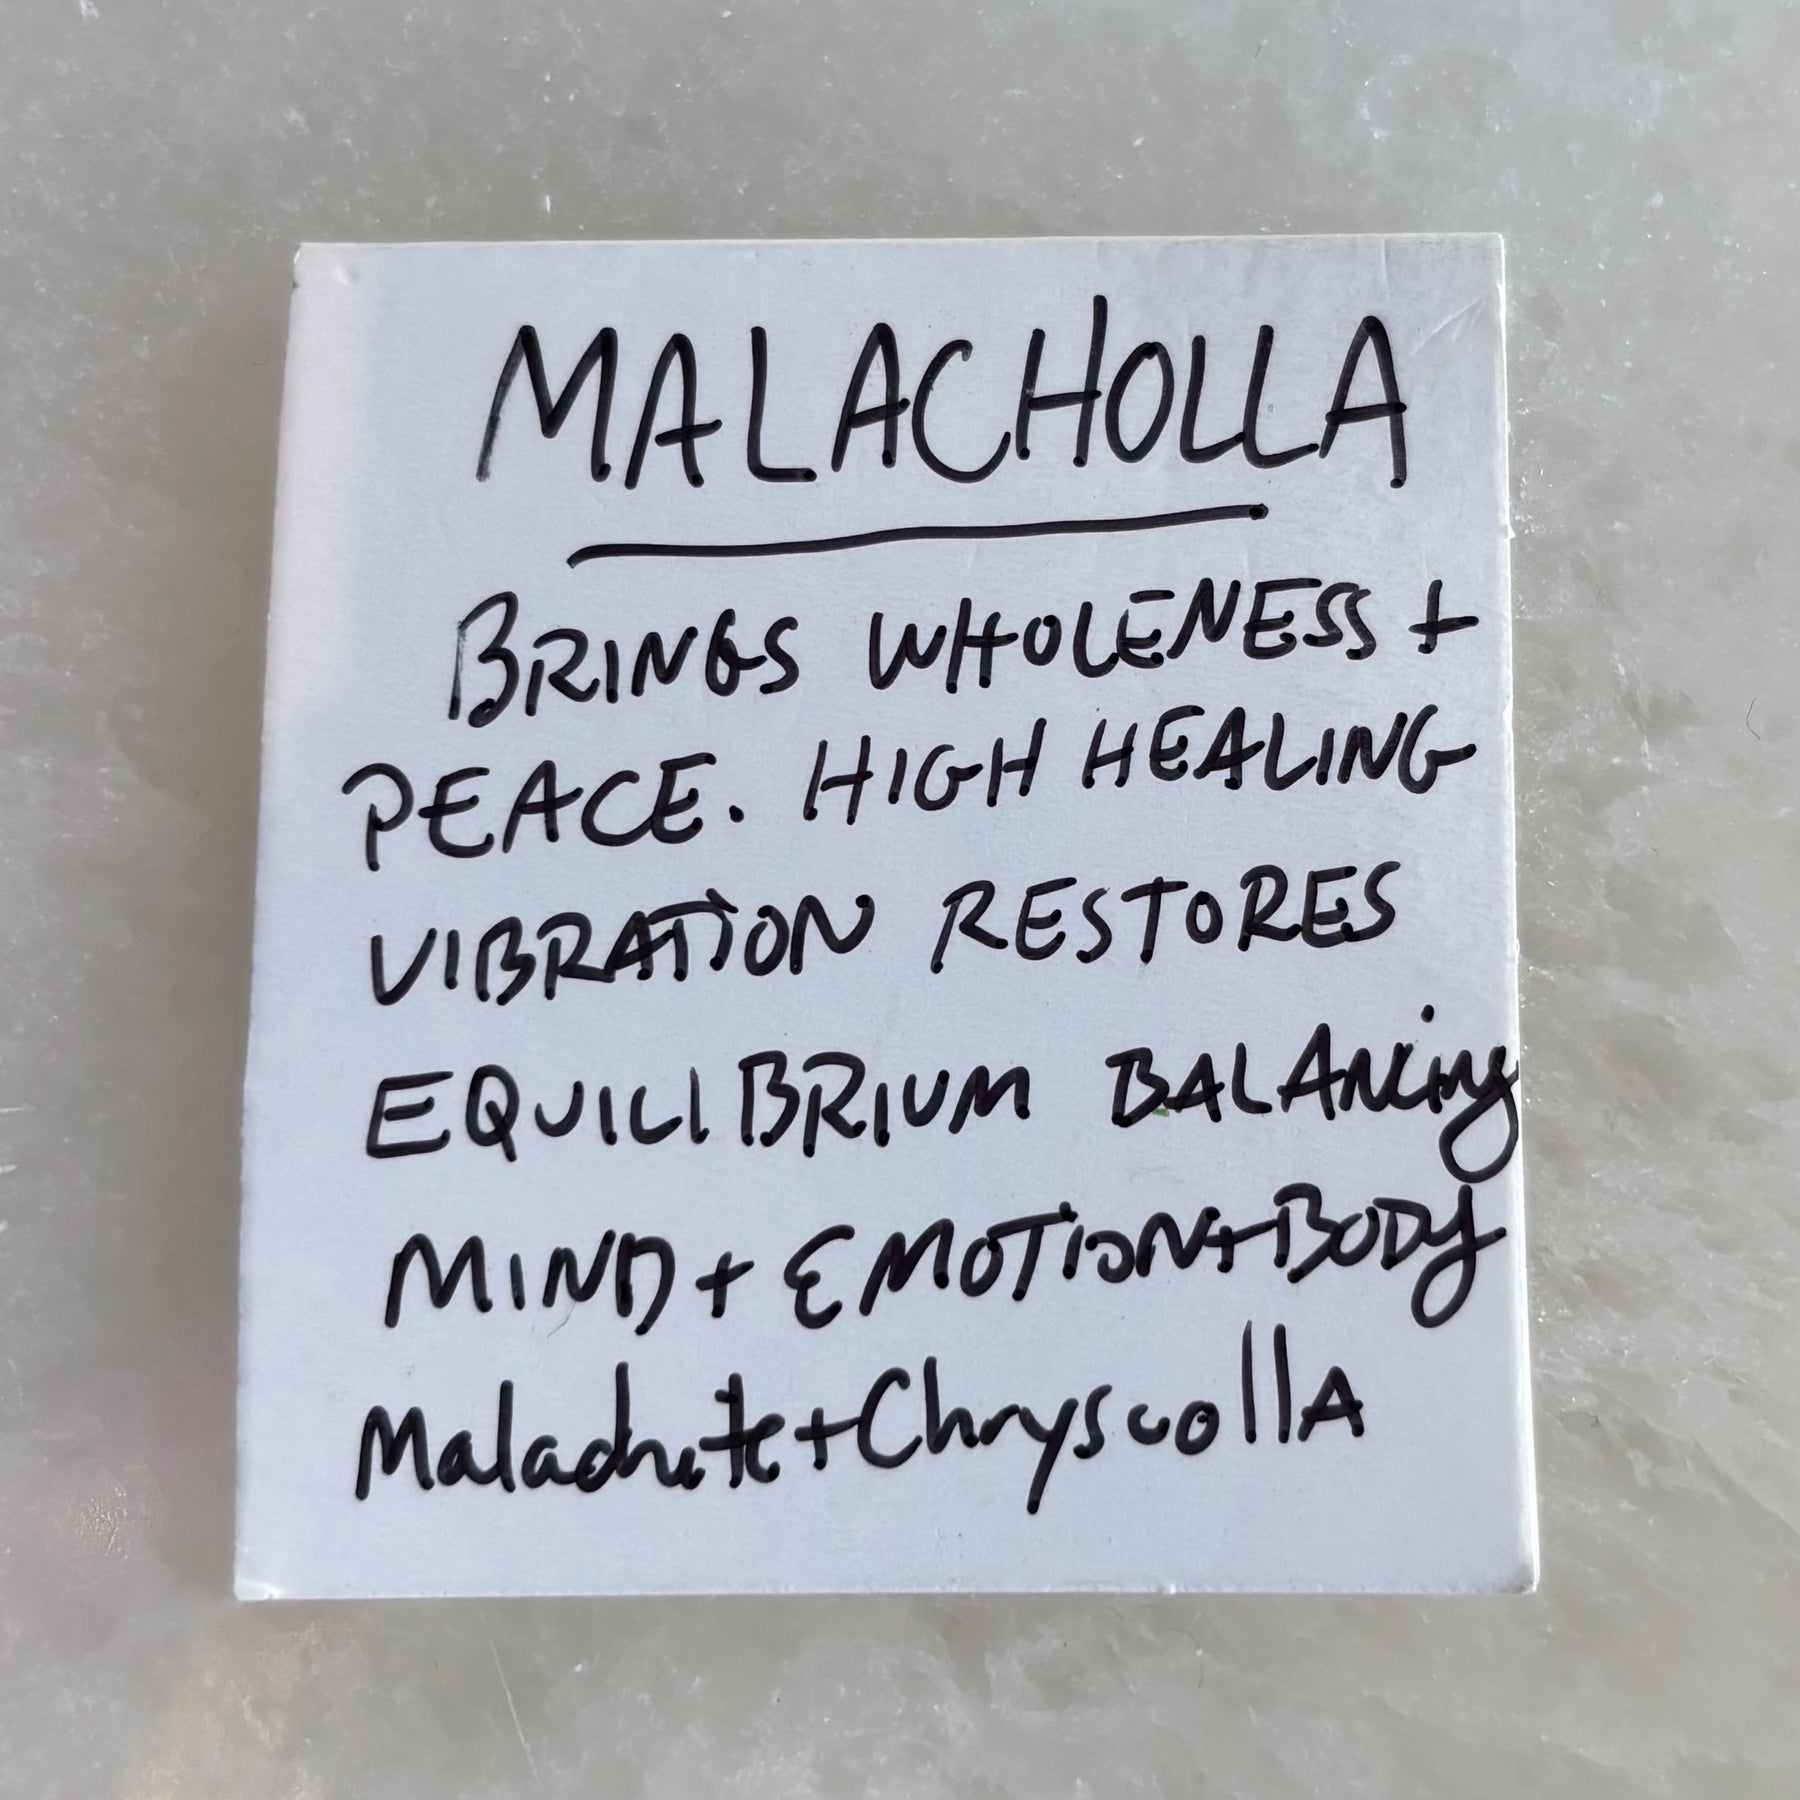 MALACHOLLA
BRINGS WHOLENESS +
PEACE. HIGH HEALING
VIBRATION RESTORES
EQUILIBRIUM BALANCing
MIND + EMOTION + BODY
Malachite + ChryscollA